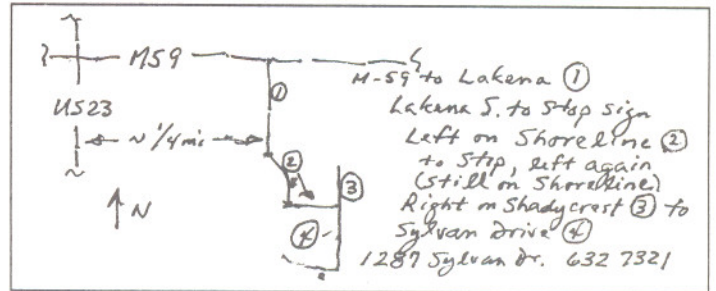 M59
US23
~ 1/4 mi
N
①
②
③
④
M-59 to Lakena ①
Lakena S. to Stop sign
Left on Shoreline ②
to Stop, left again
(still on Shoreline)
Right on Shadycrest ③ to
Sylvan Drive ④
1287 Sylvan Dr. 632 7321